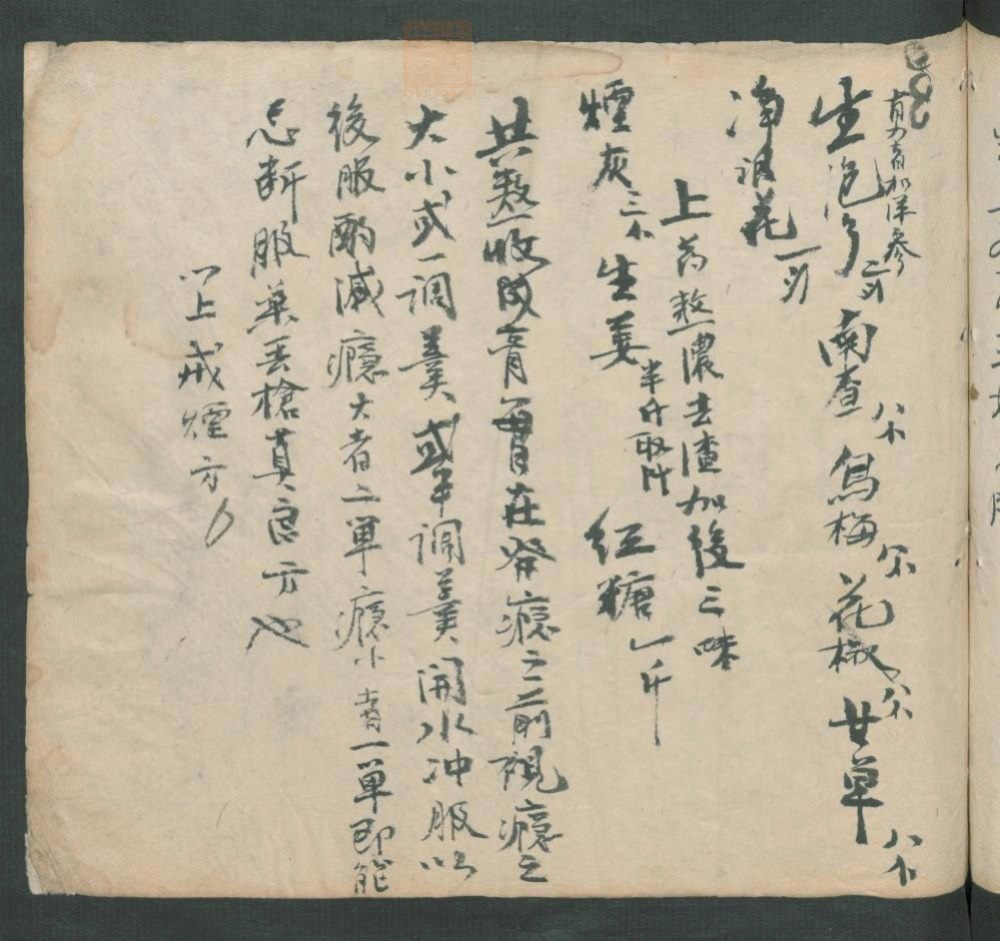 有力者加洋参
生 南查 烏梅 花椒 甘草
净花
上為熬濃去渣加後三味
煙灰 生姜半斤取汁 红糖一斤
共熬收成膏在發瘾之前視瘾之
大小或一調羹或半調羹開水冲服以
後服酌減瘾大者二單瘾小者一單即能
忌断服薬丢槍真良方也
以上戒煙方